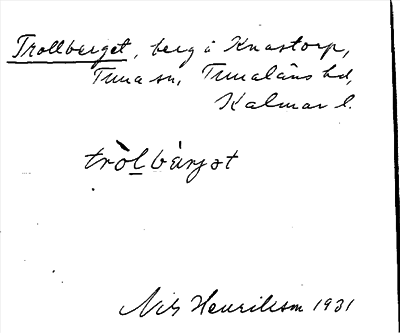 Trollberget, berg i Knastorp,
Tuna sn, Tunaläns hd,
Kalmar l.
tròlbárjət
Nils Henrikson 1931